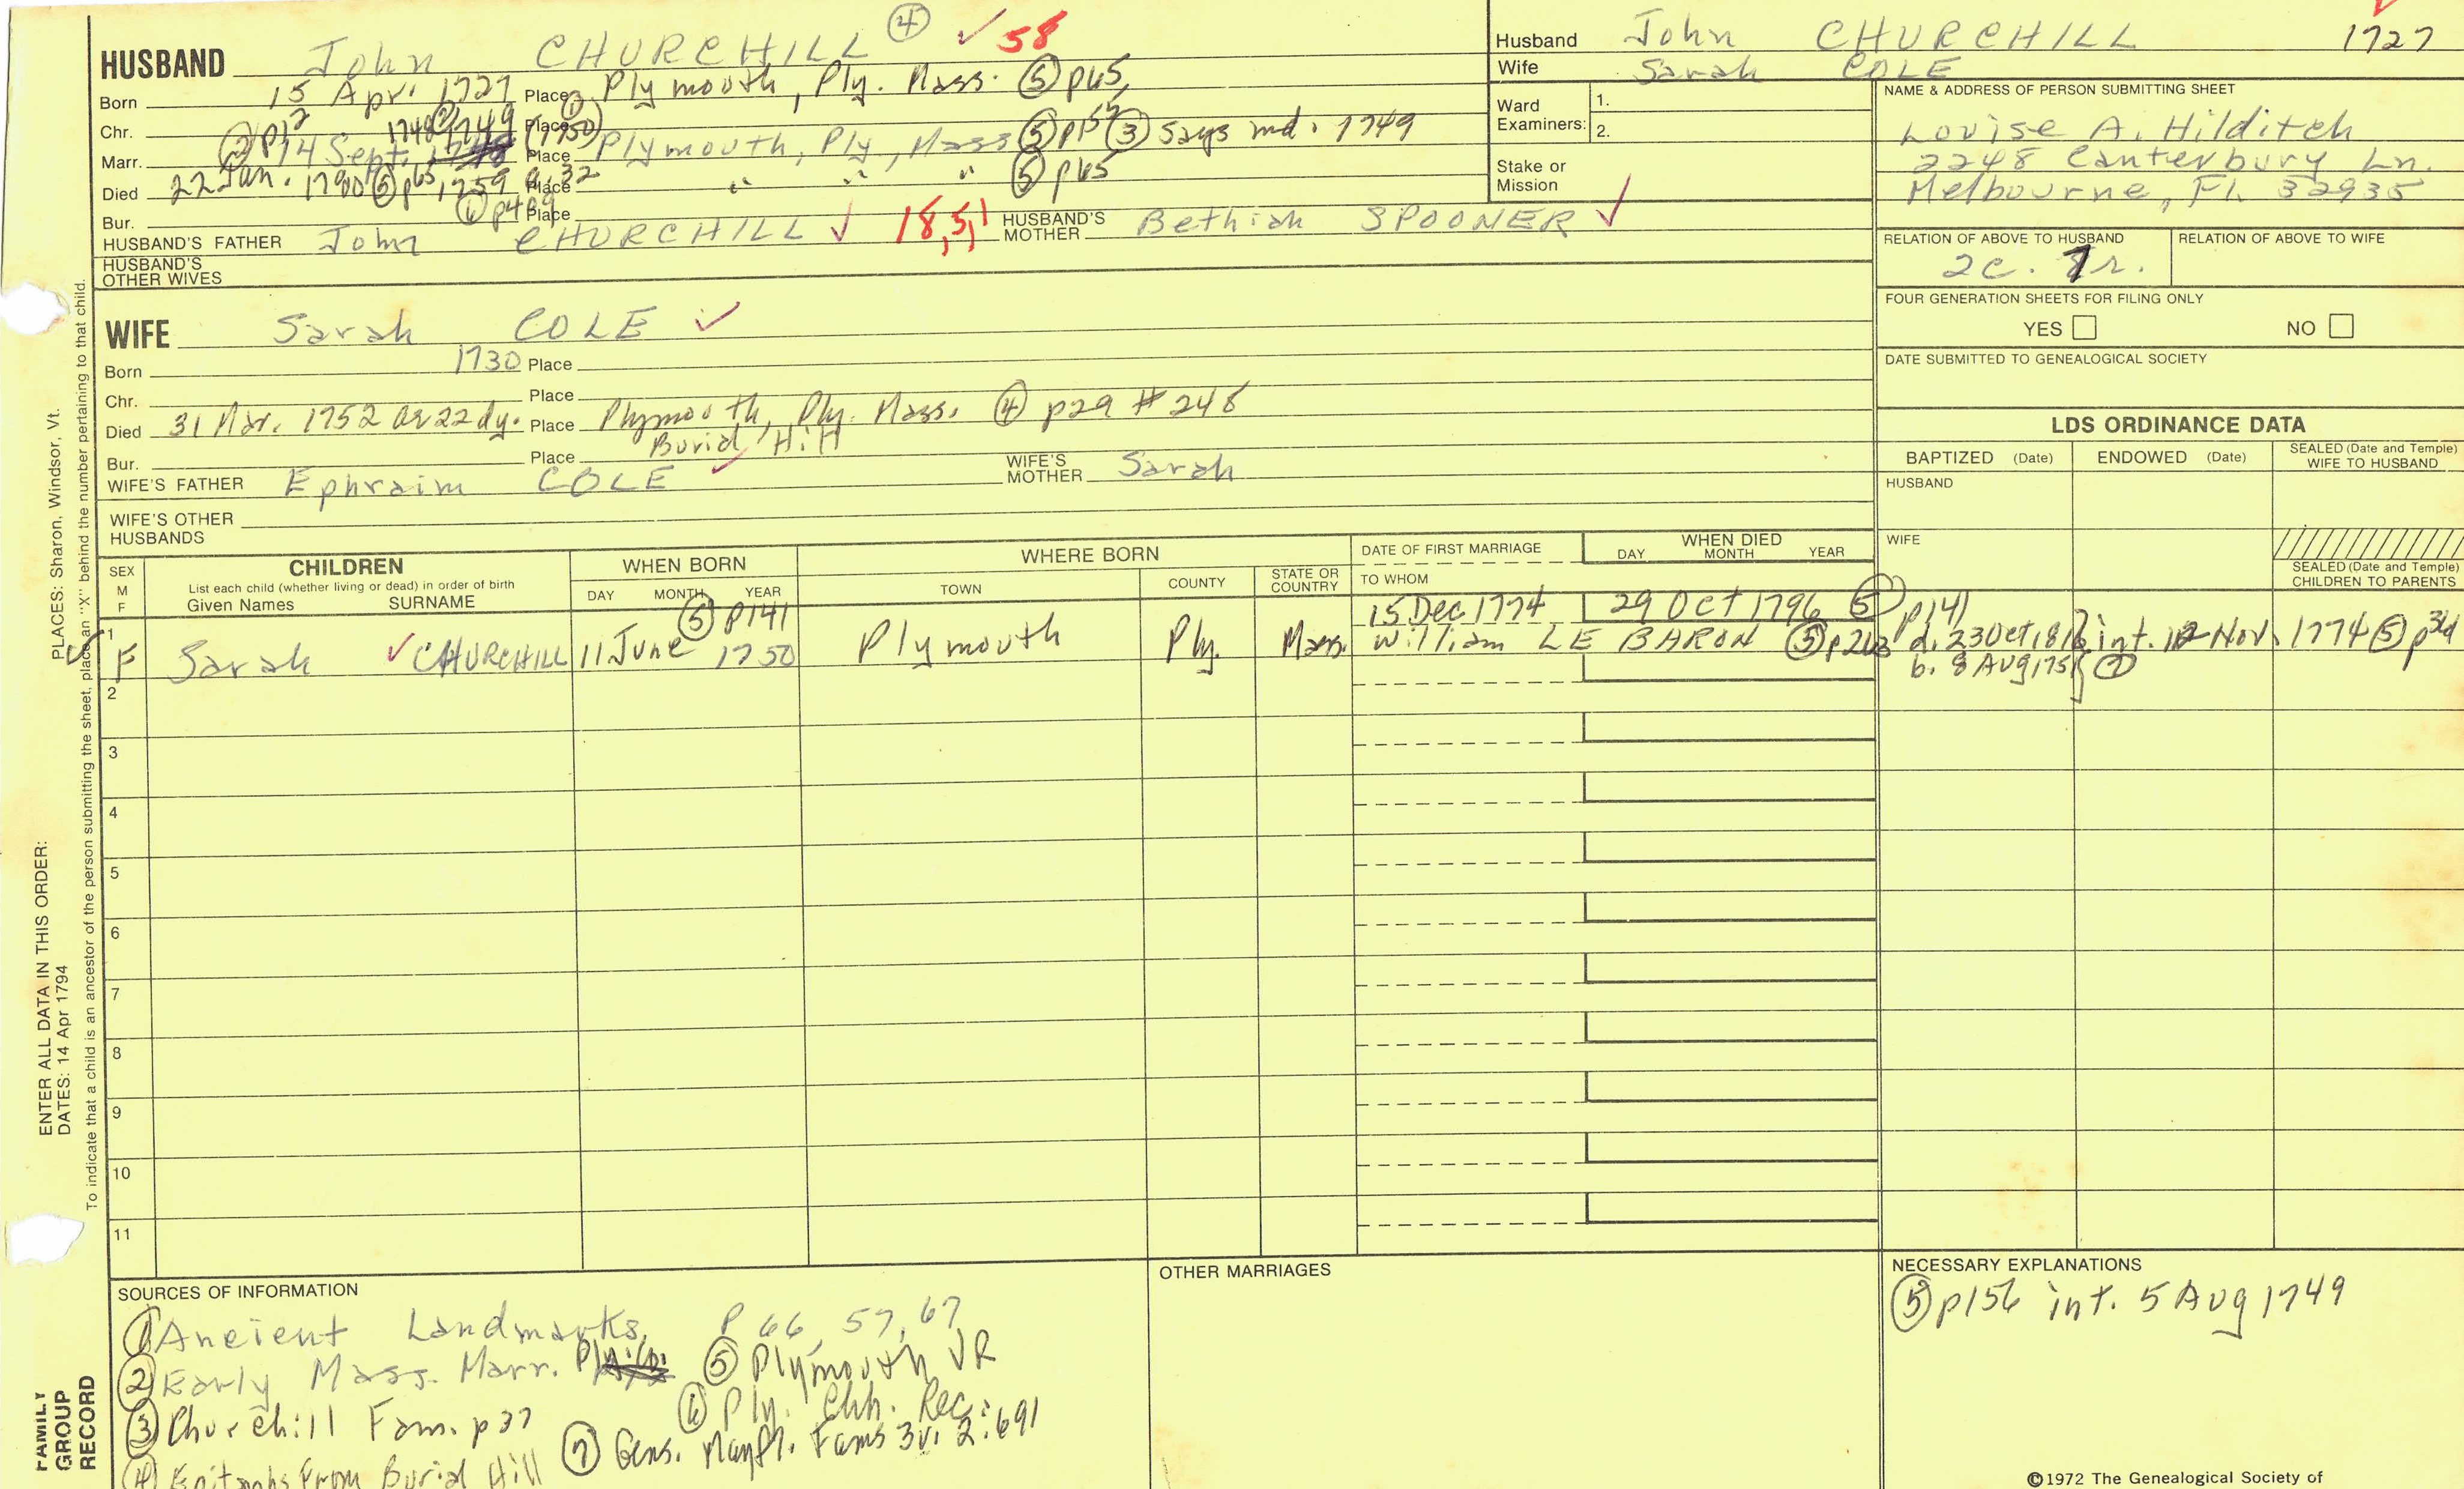 HUSBAND John CHURCHILL ④ ✓ 58
Born 15 Apr. 1727 Place ① Plymouth, Ply. Mass. ⑤ p65,
Chr. Place
Marr. ② p12 14 Sept. 1748 ② 1749 (1750) Place Plymouth, Ply, Mass ⑤ p157 ③ says md. 1749
Died 22 Jan. ⑤ p65, 1759 a. 32 Place " " " ⑤ p65
Bur. ⑥ p409 Place
HUSBAND'S FATHER John CHURCHILL ✓ 18,5,1 HUSBAND'S MOTHER Bethiah SPOONER ✓
HUSBAND'S OTHER WIVES
Husband John CHURCHILL 1727
Wife Sarah COLE
Ward Examiners: 1.
2.
Stake or Mission
NAME & ADDRESS OF PERSON SUBMITTING SHEET
Louise A. Hilditch
2248 Canterbury Ln.
Melbourne, Fl. 32935
RELATION OF ABOVE TO HUSBAND RELATION OF ABOVE TO WIFE
2c. 7r.
FOUR GENERATION SHEETS FOR FILING ONLY
YES NO
DATE SUBMITTED TO GENEALOGICAL SOCIETY
WIFE Sarah COLE ✓
Born 1730 Place
Chr. Place
Died 31 Mar. 1752 ae 22 dy. Place Plymouth, Ply. Mass. ④ p29 #248
Burial Hill
Bur. Place
WIFE'S FATHER Ephraim COLE ✓ WIFE'S MOTHER Sarah
WIFE'S OTHER HUSBANDS
LDS ORDINANCE DATA
BAPTIZED (Date) ENDOWED (Date) SEALED (Date and Temple) WIFE TO HUSBAND
HUSBAND
WIFE
SEALED (Date and Temple) CHILDREN TO PARENTS
SEX M F CHILDREN WHEN BORN WHERE BORN DATE OF FIRST MARRIAGE WHEN DIED
List each child (whether living or dead) in order of birth
Given Names SURNAME DAY MONTH YEAR TOWN COUNTY STATE OR COUNTRY TO WHOM DAY MONTH YEAR
⑤ p141 15 Dec 1774 29 Oct 1796 ⑤ p141
1 F Sarah ✓ CHURCHILL 11 June 1750 Plymouth Ply. Mass. William LE BARON ⑤ p263 d. 23 Oct. 1816 int. 12 Nov. 1774 ⑤
b. 8 Aug 1751 ⑦
2
3
4
5
6
7
8
9
10
11
SOURCES OF INFORMATION
① Ancient Landmarks, P 66, 57, 67
② Early Mass. Marr. ⑤ Plymouth VR
③ Churchill Fam. p37 ⑥ Ply. Chh. Rec.
④ Epitaphs From Burial Hill ⑦ Gens. Mayfl. Fams 3v. 2:691
OTHER MARRIAGES
NECESSARY EXPLANATIONS
⑤ p156 int. 5 Aug 1749
©1972 The Genealogical Society of
PLACES: Sharon, Windsor, Vt.
To indicate that a child is an ancestor of the person submitting the sheet, place an "X" behind the number pertaining to that child.
ENTER ALL DATA IN THIS ORDER:
DATES: 14 Apr 1794
FAMILY GROUP RECORD